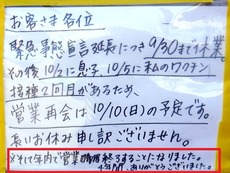 お客さま各位
緊急事態宣言延長につき9/30まで休業。
その後10/2に息子、10/5に私のワクチン
接種2回目があるため、
営業再会は10/10(日)の予定です。
長いお休み申し訳ございません。
※そして年内で営業終了することになりました。
年間、ありがとうございました。